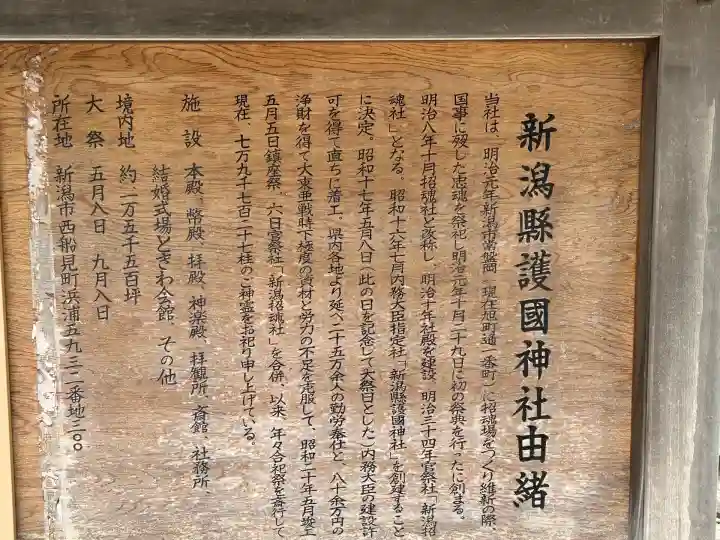 新潟縣護國神社由緒
当社は、明治元年新潟市常盤岡(現在旭町通二番町)に招魂場をつくり維新の際、
国事に殁した忠魂を祭祀し明治元年十月二十九日に初の祭典を行ったに創まる。
明治八年十月招魂社と改称し、明治十年社殿を建設、明治三十四年官祭社「新潟招
魂社」となる。昭和十六年七月内務大臣指定社「新潟縣護國神社」を創建すること
に決定。昭和十七年五月八日(此の日を記念して大祭日とした)内務大臣の建設許
可を得て直ちに着工、県内各地より延べ二十五万余人の勤労奉仕と、八十余万円の
浄財を得て大東亜戦時下極度の資材と労力の不足を克服して、昭和二十年五月竣工
五月五日鎮座祭、六日官祭社「新潟招魂社」を合併、以来、年々合祀祭を斎行して
現在、七万九千七百二十七柱のご神霊をお祀り申し上げている。
施設 本殿、幣殿、拝殿、神楽殿、拝観所、斎館、社務所、
結婚式場ときわ会館、その他
境内地 約二万五千五百坪
大祭 五月八日 九月八日
所在地 新潟市西船見町浜浦五九三二番地三〇〇